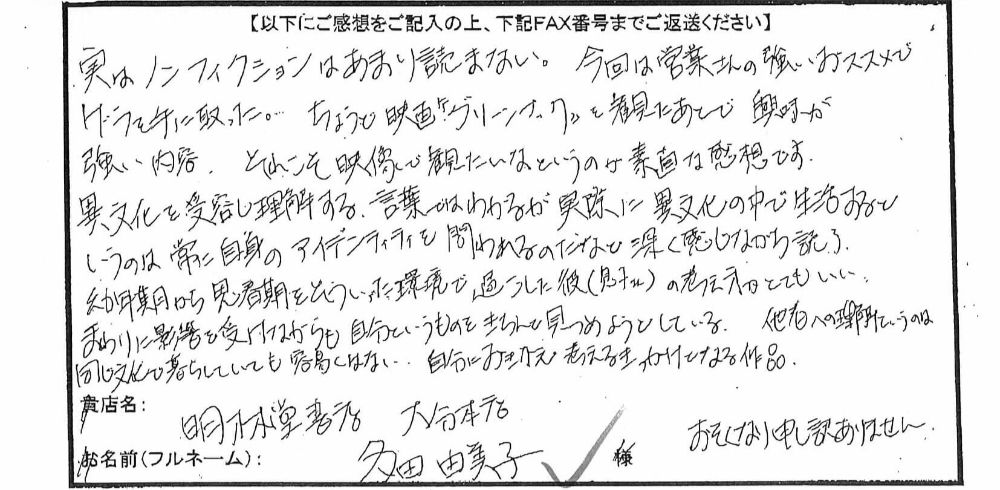 【以下にご感想をご記入の上、下記FAX番号までご返送ください】
実はノンフィクションはあまり読まない。今回は営業さんの強いおススメで
ゲラを手に取った。ちょうど映画『グリーンブック』を観たあとで興味が
強い内容。それこそ映像で観たいなというのが素直な感想です。
異文化を受容し理解する、言葉ではわかるが実際に異文化の中で生活すると
いうのは常に自身のアイデンティティを問われるのだなと深く感じながら読了。
幼年期から思春期をそういった環境で過ごした彼(息子さん)の考え方がとてもいい。
まわりに影響を受けながらも自分というものをきちんと見つめようとしている。他者への理解というのは
同じ文化で暮らしていても容易くはない。自分におきかえ考えるきっかけとなる作品。
貴店名:
明林堂書店 大分本店
おそくなり申し訳ありません
お名前(フルネーム): 多田由美子 様